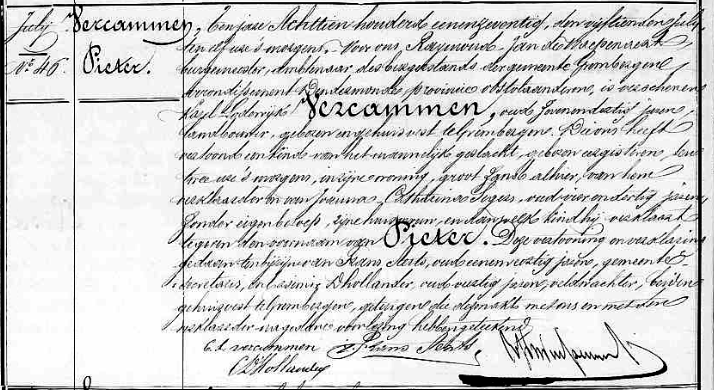 July
N° 46.
Vercammen,
Pieter.
Ten jare Achttien honderd eenenzeventig, den vijftienden July
ten elf ure 's morgens, Voor ons, Raymond Jan de
burgemeester, Ambtenaar des burgerstands der gemeente Grembergen
arrondissement Dendermonde, provincie Oostvlaanderen, is verschenen
Karel Lodewijk Vercammen, oud jaren
landbouwer, geboren en gehuisvest te Grembergen. Die ons heeft
vertoond een kind van het mannelijk geslacht, geboren eergisteren, ten
twee ure 's morgens, in zijne woning, groot alhier, van hem
verklaarder en van Joanna Catharina Segers, oud vier en dertig jaren,
zonder eigen beroep, zijne huisvrouw, en aan welk kind hij verklaart
te geven den voornaam van Pieter. Deze vertooning en verklaring
gedaan ten bijzijn van Frans Aerts, oud eenenveertig jaren, gemeente
secretaris, en Casimir D'hollander, oud veertig jaren, veldwachter, beiden
gehuisvest te Grembergen, getuigen die dezen akt met ons en met den
verklaarder na gedane voorlezing hebben geteekend
C. L. vercammen Frans Aerts
C D'Hollander